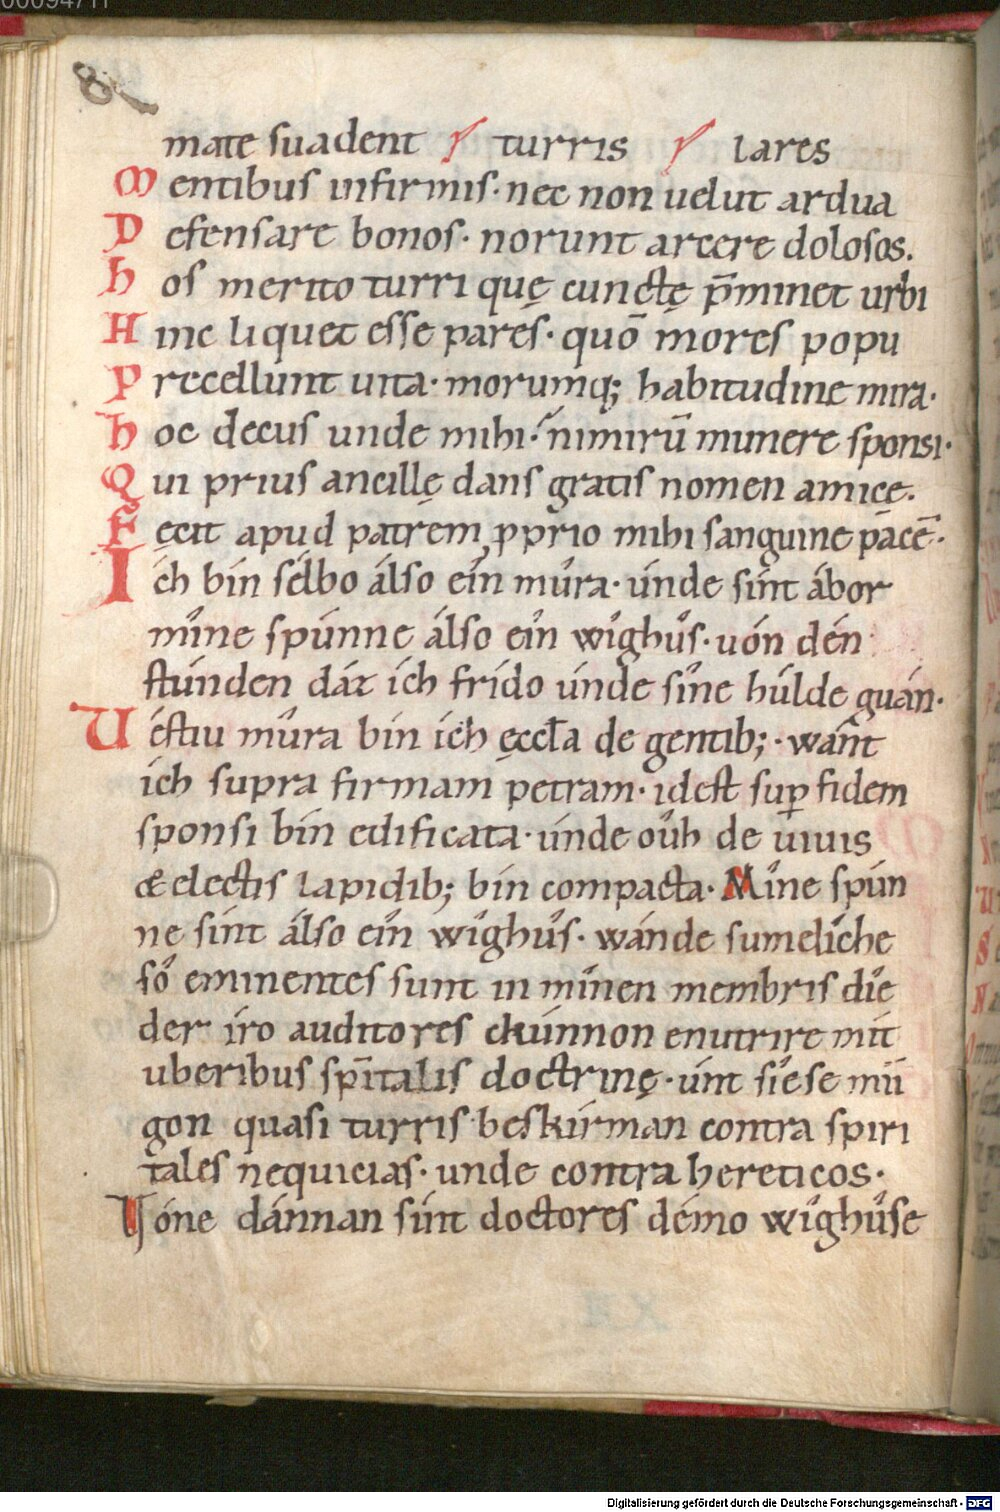 00094711
8
mate suadent turris lares
Mentibus infirmis· nec non uelut ardua
Defensare bonos· norunt arcere dolosos.
hos merito turri quę cunctę p̄minet urbi
Hinc liquet esse pares· quō mores popu
Precellunt uita· morumq; habitudine mira·
hoc decus unde mihi· nimirū munere sponsi·
Qui prius ancillę dans gratis nomen amicę.
Fęcit apud patrem ꝓprio mihi sanguine pacē·
Ich bin sélbo álso eîn mûra· únde sínt ábor
mîne spúnne álso eîn wîghûs· uón dén
stúnden dáz ich frído únde sîne húlde guán·
Uéstiu mûra bin ich ęccl̄a de gentib;· wánt
ich supra firmam petram· idest suꝑ fidem
sponsi bin edificata· únde oûh de uiuis
& electis lapidib; bin compacta· Mîne spún
ne sínt álso eîn wîghûs· wánde sumelîche
sô eminentes sunt in mînen membris dîe
der íro auditores ckúnnon enutrire mit
uberibus sp̄italis doctrinę· únt sîe se mú
gon quasi turris beskírman contra spiri
tales nequicias· unde contra hereticos·
Uóne dánnan sínt doctores démo wîghûse
Digitalisierung gefördert durch die Deutsche Forschungsgemeinschaft - DFG